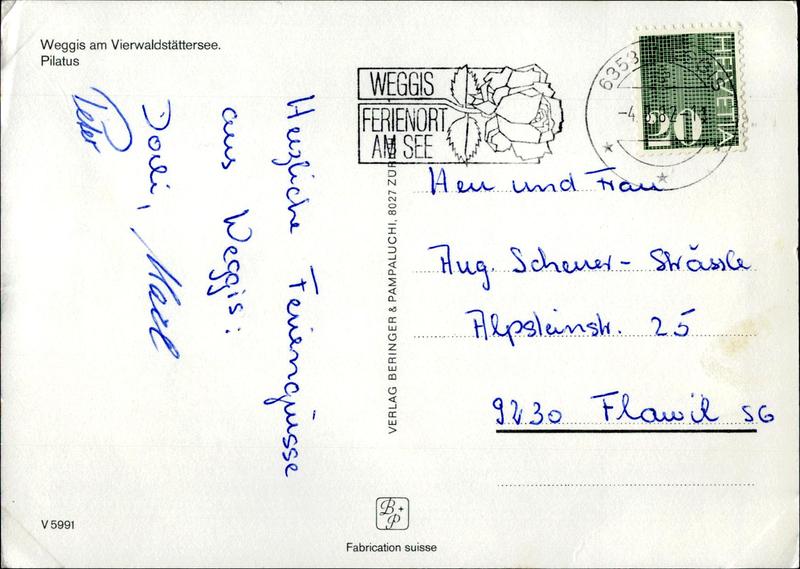 Weggis am Vierwaldstättersee.
Pilatus
Herzliche Feriengrüsse
aus Weggis:
Dorli,
Peter
WEGGIS
FERIENORT
AM SEE
6353
HELVETIA
50
VERLAG BERINGER & PAMPALUCHI, 8027 ZÜR
Herr und Frau
Aug. Scheuer - Strässle
Alpsteinstr. 25
9230 Flawil SG
V 5991
B + P
Fabrication suisse